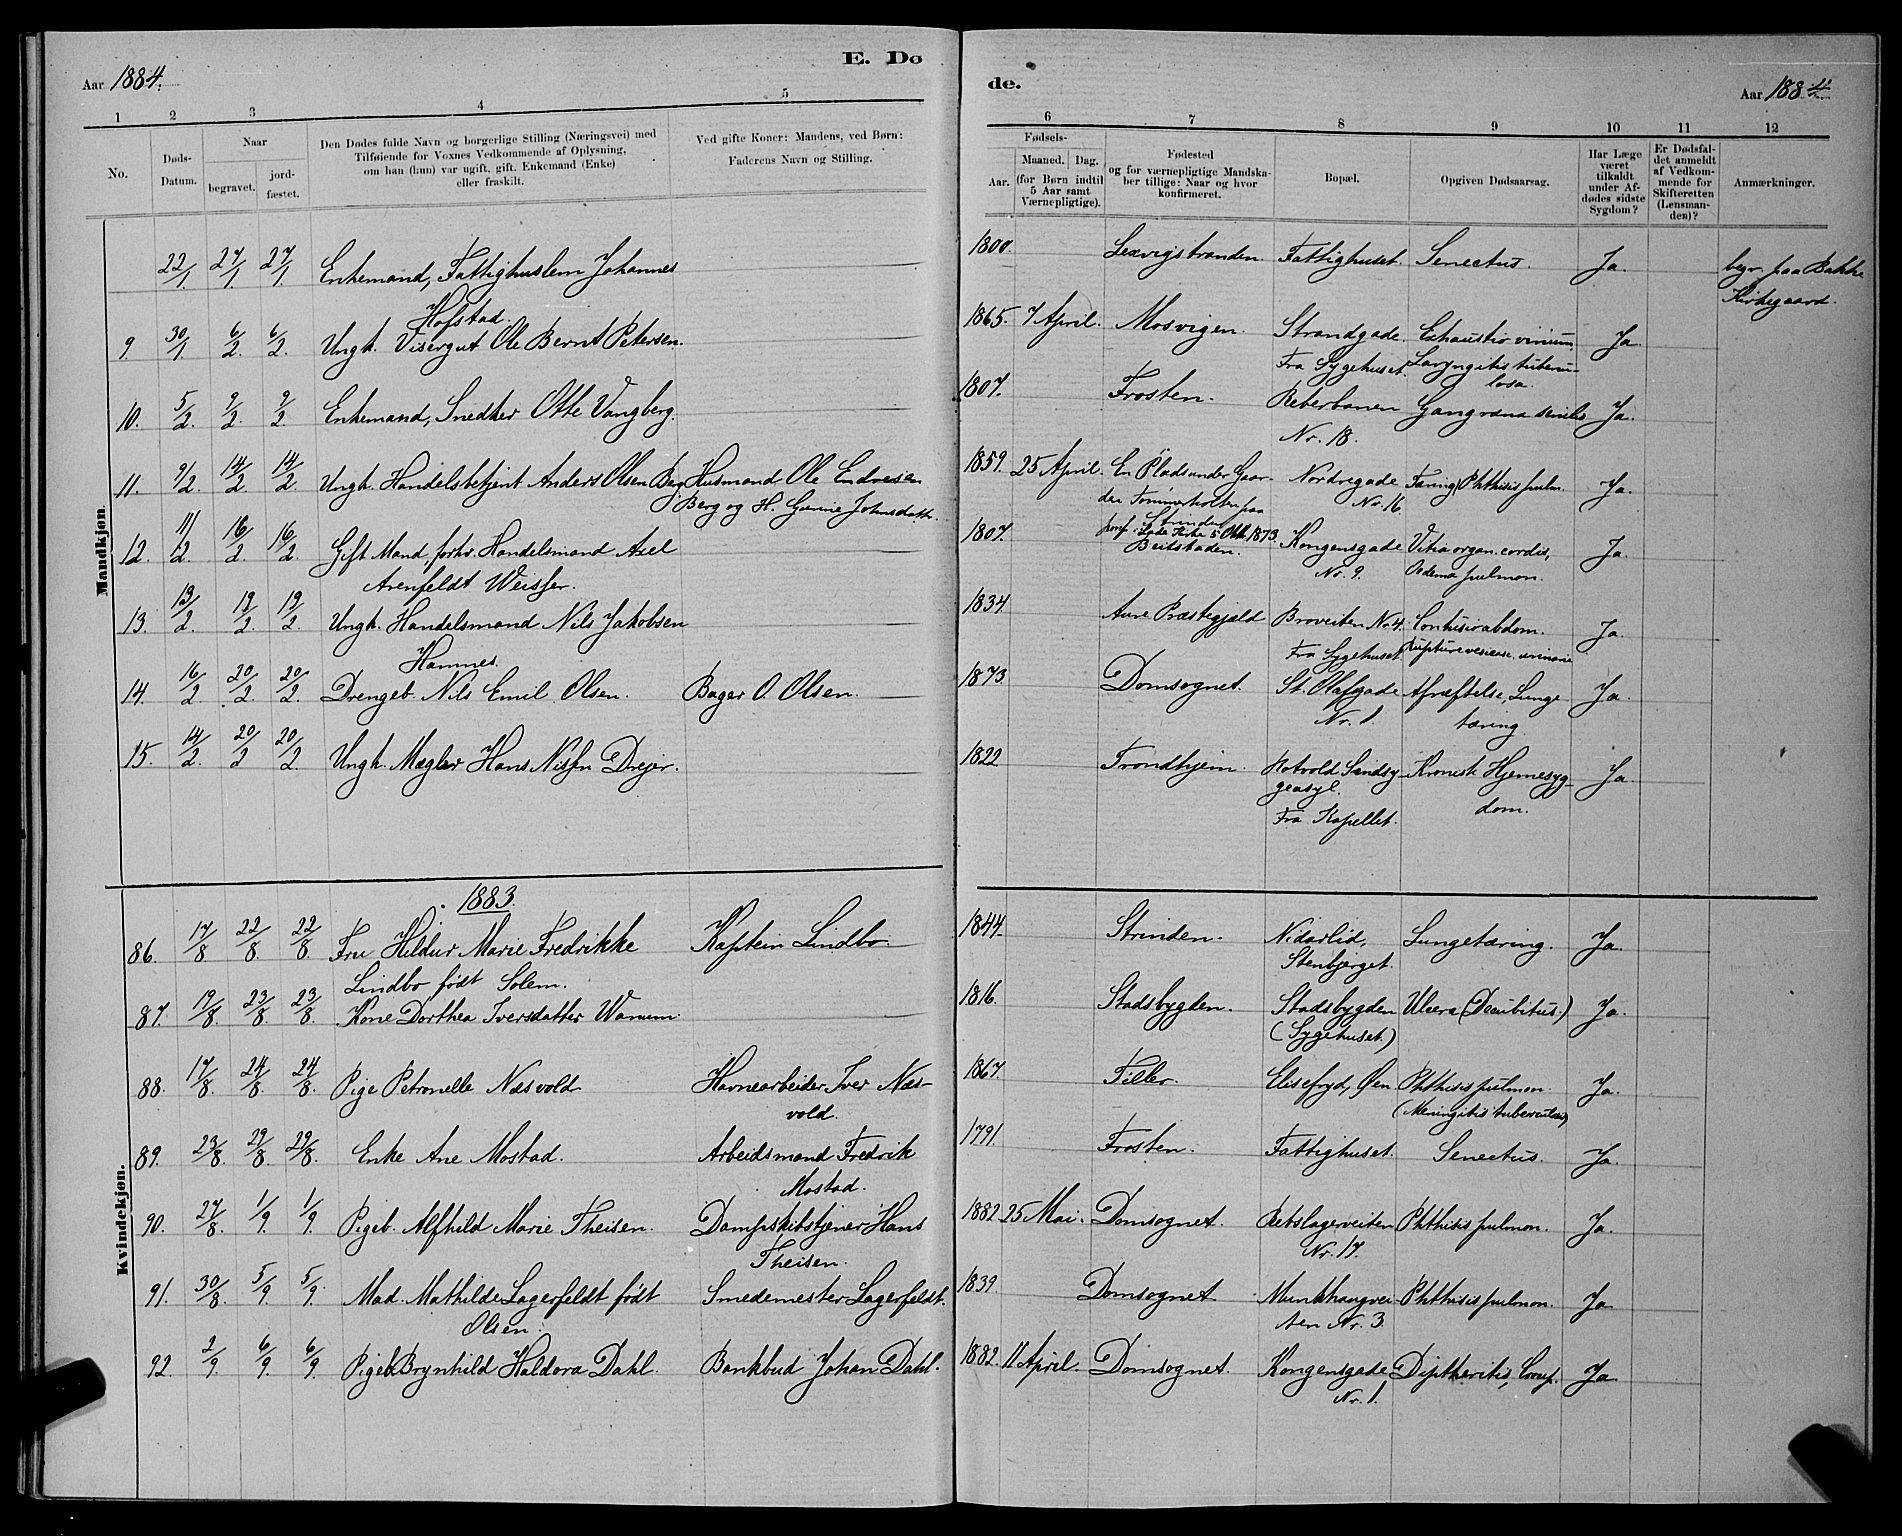 Aar 1884.
E. Dø
de.
Aar 1884
1 2 3 4 5
6 7 8 9 10 11 12
No.
Døds-Datum.
Naar
begravet.
jord-fæstet.
Den Dødes fulde Navn og borgerlige Stilling (Næringsvei) med
Tilføiende for Voxnes Vedkommende af Oplysning,
om han (hun) var ugift, gift, Enkemand (Enke)
eller fraskilt.
Ved gifte Koner: Mandens, ved Børn:
Faderens Navn og Stilling.
Fødsels-
Aar.
Maaned. Dag.
(for Børn indtil
5 Aar samt
Værnepligtige).
Fødested
og for værnepligtige Mandska-
ber tillige: Naar og hvor
konfirmeret.
Bopæl.
Opgiven Dødsaarsag.
Har Læge
været
tilkaldt
under Af-
dødes sidste
Sygdom?
Er Dødsfal-
det anmeldt
af Vedkom-
mende for
Skifteretten
(Lensman-
den)?
Anmærkninger.
Mandkjøn.
22/1 27/1 27/1 Enkemand, Fattighuslem Johannes
Hofstad.
1800. Lexvigstranden. Fattighuset. Senectus. Ja. begr. paa Bakke
Kirkegaard.
9 30/1 6/2 6/2. Ungk. Visergut Ole Bernt Petersen.
1865. 7 April. Mosvigen. Strandgade. Exhaustio virium Ja
Fra Sygehuset. Laryngitis tubercu-
losa.
10. 5/2. 9/2. 9/2. Enkemand, Snedker Otte Vangberg.
1807. Frosten. Reberbanen Gangræna senilis Ja.
Nr. 18.
11. 9/2. 14/2 14/2. Ungk. Handelsbetjent Anders Olsen Berg Husmand Ole Endresen
Berg og H. Gurine Johnsdatter.
1859. 25 April. En Plads under Gaar- Nordregade Tæring, Phthisis pulm. Ja.
den Tommerholten paa Nr. 16
Strinden
konf. i Lade Kirke 5 Okt. 1873.
12. 11/2 16/2 16/2. Gift Mand, forhv. Handelsmand Axel
Arenfeldt Weisser.
1807. Beitstaden. Kongensgade Vitia organ. cordis, Ja.
Nr. 9. Oedema pulmon.
13. 13/2 19/2. 19/2. Ungk. Handelsmand Nils Jakobsen
Hamnes.
1834. Aure Præstegjæld Broveiten Nr 4. Contusio abdom. Ja.
Fra Sygehuset. Ruptura vesicae urinariæ
14. 16/2 20/2. 20/2. Drengeb. Nils Emil Olsen. Bager O. Olsen.
1873. Domsognet. St. Olafgade Afkræftelse, Lunge Ja.
Nr. 1. tæring
15. 14/2. 20/2 20/2. Ungk. Mægler Hans Nissen Drejer.
1822 Trondhjem. Rotvold Sindsy- Kronisk Hjernesyg- Ja.
geasyl. dom.
Fra Kapellet.
Kvindekjøn.
1883.
86. 17/8 22/8. 22/8. Fru Hildur Marie Fredrikke Kaptein Lindbo
Lindbo født Solem.
1844. Strinden. Nidarlid, Lungetæring. Ja.
Stenbjerget.
87. 19/8. 23/8. 23/8. Kone Dorthea Iversdatter Wanum.
1816. Stadsbygden. Stadsbygden Ulcera (Decubitus.) Ja.
(Sygehuset.)
88. 17/8. 24/8. 24/8. Pige Petronelle Næsvold Havnearbeider Iver Næs-
vold.
1867. Tiller. Elisefryd, Øen Phthisis pulmon. Ja.
(Meningitis tuberculosa)
89. 23/8. 29/8. 29/8. Enke Ane Mostad. Arbeidsmand Fredrik
Mostad.
1791. Frosten. Fattighuset. Senectus. Ja.
90. 27/8. 1/9 1/9 Pigeb. Alfhild Marie Theisen. Dampskibstjener Hans
Theisen.
1882 25 Mai. Domsognet. Rebslagerveiten Phthisis pulmon. Ja.
Nr. 17.
91. 30/8. 5/9. 5/9. Mad. Mathilde Lagerfeldt født Smedemester Lagerfeldt.
Olsen.
1839. Domsognet Munkhaugvei- Phthisis pulmon. Ja
ten Nr. 3.
92. 2/9. 6/9. 6/9. Pigeb. Brynhild Haldora Dahl. Bankbud Johan Dahl.
1882. 11 April. Domsognet. Kongensgade Diptheritis, Croup. Ja
Nr. 1.